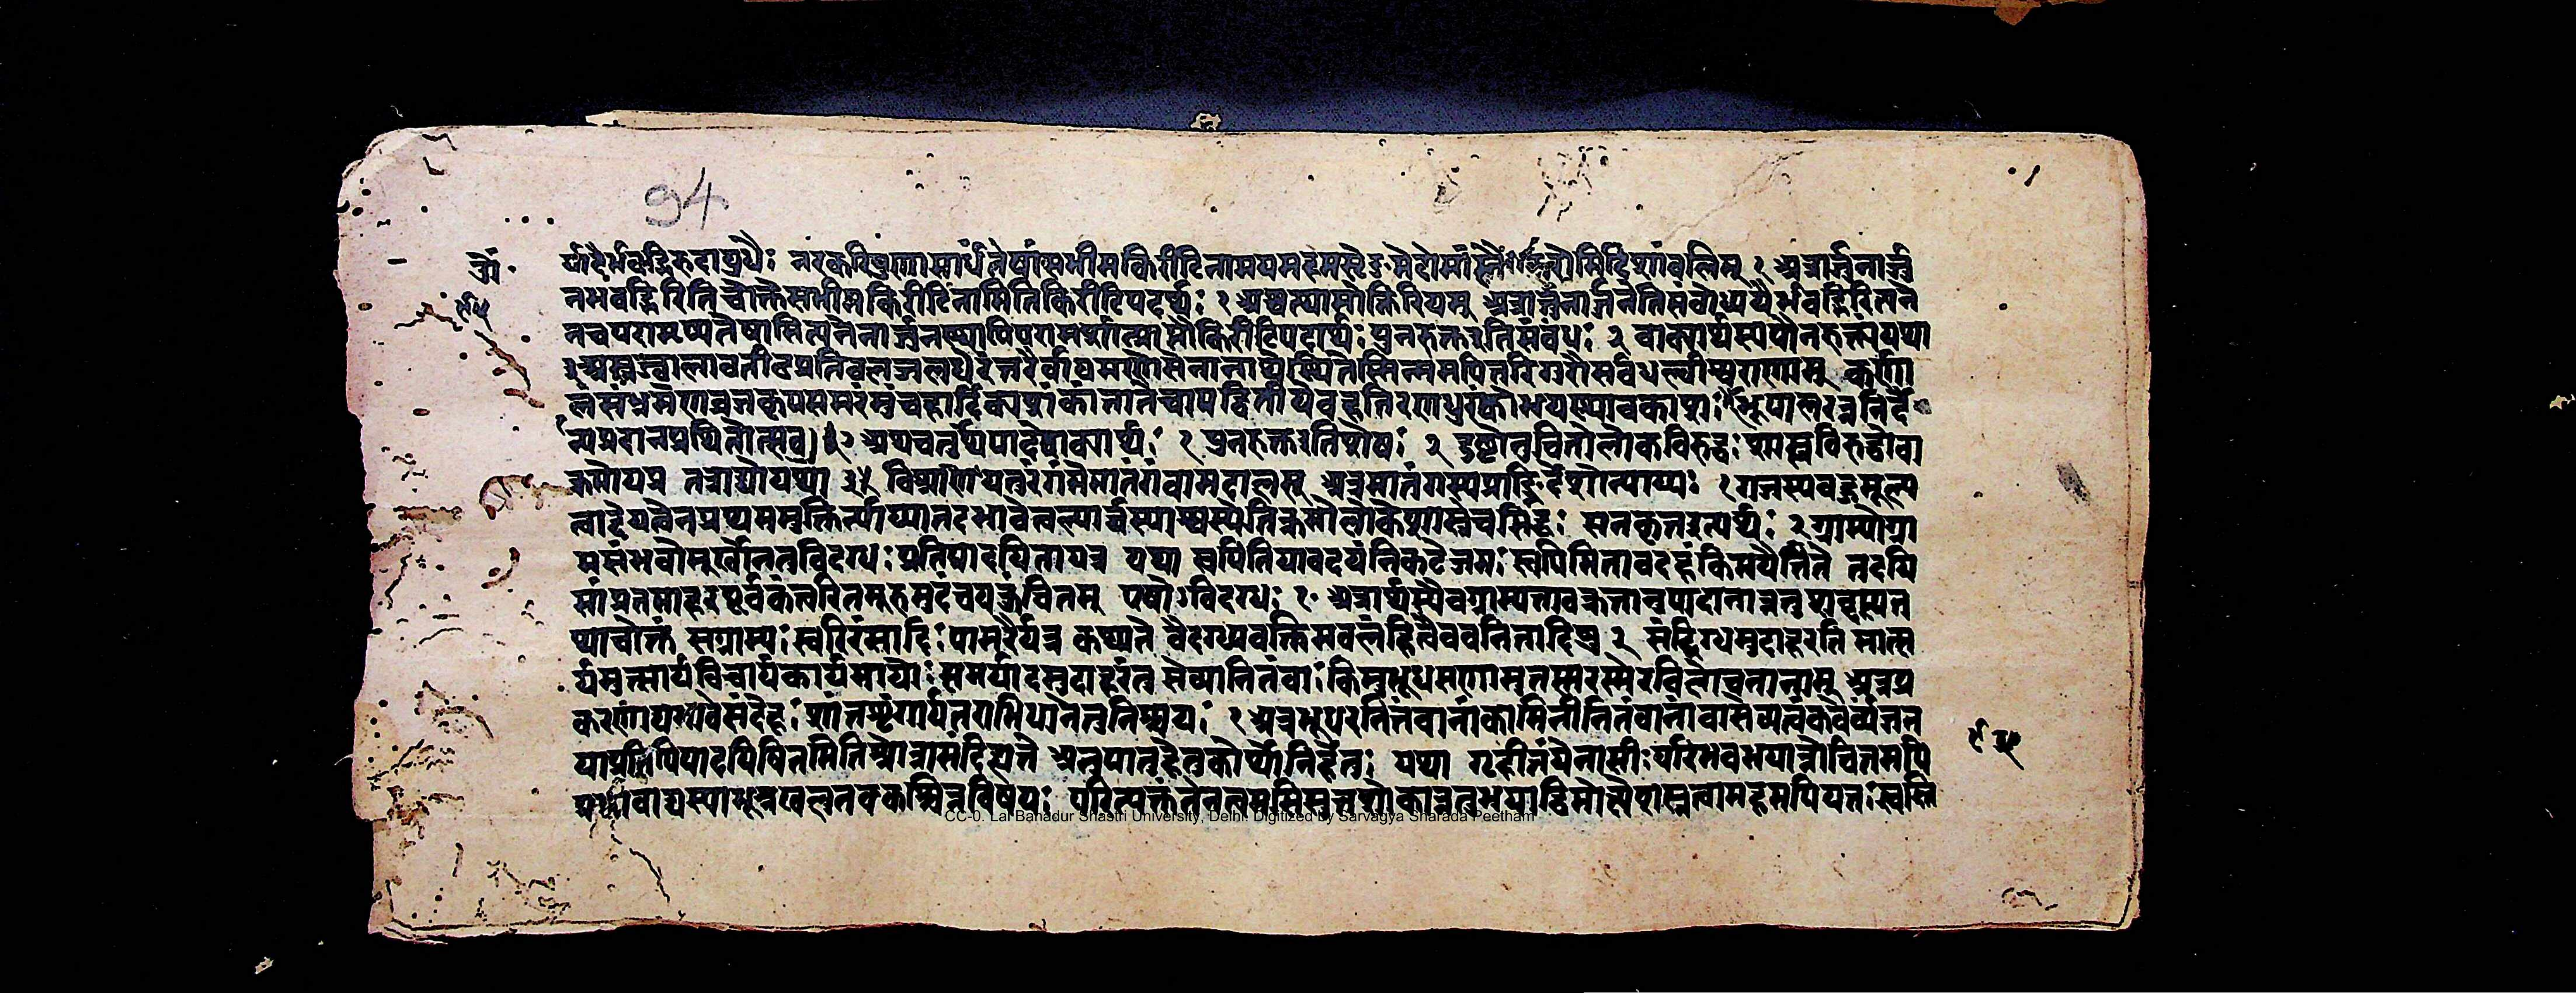 94
र्यादैर्भवद्भिरुदायुधैः नरकरिपुणासार्धंतेषांसभीमकिरीटिनामयमहमसृङ्मेदोमांसैः करोमिदिशांबलिम् १ अत्रार्जुनार्जु
नभवद्भिरितिचोक्तेसभीमकिरीटिनामितिकिरीटिपदार्थः १ अश्वत्थाम्नोक्तिरियम् अत्रार्जुनार्जुनेतिसंबोध्ययैर्भवद्भिरित्यने
नचपरामृष्यतेषामित्यनेनार्जुनस्यापिपरामर्शात्प्राप्तौकिरीटिपदार्थः पुनरुक्तइतिसंबंधः २ वाक्यार्थस्यपौनरुक्त्यंयथा
अस्त्रज्वालावलीढप्रतिबलजलधेरंतरौर्वायमाणेसेनानाथेस्थितेस्मिन्ममपितरिगुरौसर्वधन्वीश्वराणाम् कर्णा
लंसंभ्रमेणव्रजकृपसमरंमुंचहार्दिक्यशंकांतातेचापद्वितीयेवहतिरणधुरंकोभयस्यावकाशः
अत्रचतुर्थपादेवाक्यार्थः १ पुनरुक्तइतिशेषः २ दुष्टोनुचितोलोकविरुद्धः शास्त्रविरुद्धोवा
क्रमोयत्र तत्राद्योयथा विश्राणयतुरंगंमेमातंगंवामदालसम् अत्रमातंगस्यप्राङ्निर्देशोन्याय्यः १ गजस्यबहुमूल्य
त्वाद्देयत्वेनप्रथममुक्तिर्न्याय्यातदभावेत्वल्पार्घस्याश्वस्येतिक्रमोलोकेशास्त्रेचसिद्धः सनकृतइत्यर्थः २ ग्राम्योग्रा
मसंभवोमूर्खोनतुविदग्धः प्रतिपादयितायत्र यथा स्वपितियावदयंनिकटेजनः स्वपिमितावदहंकिमपैतिते तदयि
सांप्रतमाहरकूर्परंत्वरितमूरुमुदंचयकुंचितम् एषोऽविदग्धः १
प्याचोक्तं सग्राम्यः स्वरिरंसादिः पामरैर्यत्र कथ्यते वैदग्ध्यवक्रिमबलंहित्वैववनितादिषु २ संदिग्धमुदाहरति मात्स
र्यमुत्सार्यविचार्यकार्यमार्याः समर्यादमुदाहरंतु सेव्यानितंबाः किमुभूधराणामुतस्मरस्मेरविलासिनीनाम् अत्रप्र
करणाद्यभावेसंदेहः शांतशृंगार्यन्यतराभिधानेतुनिश्चयः १ अत्रभूधरनितंबानांकामिनीनितंबानांवासेव्यत्वंकवेर्व्यंजन
याप्रतिपिपादयिषितमितिश्रोत्रासंदिह्यते अनुपात्तहेतुकोर्थोनिर्हेतुः यथा गृहीतंयेनासीः परिभवभयान्नोचितमपि
प्रभावाद्यस्याभून्नखलुतवकश्चिन्नविषयः परित्यक्तंतेनत्वमसिसुतशोकान्नतुभयाद्विमोक्ष्येशस्त्रत्वामहमपियतः स्वस्ति
CC-0. Lal Bahadur Shastri University, Delhi. Digitized by Sarvagya Sharada Peetham